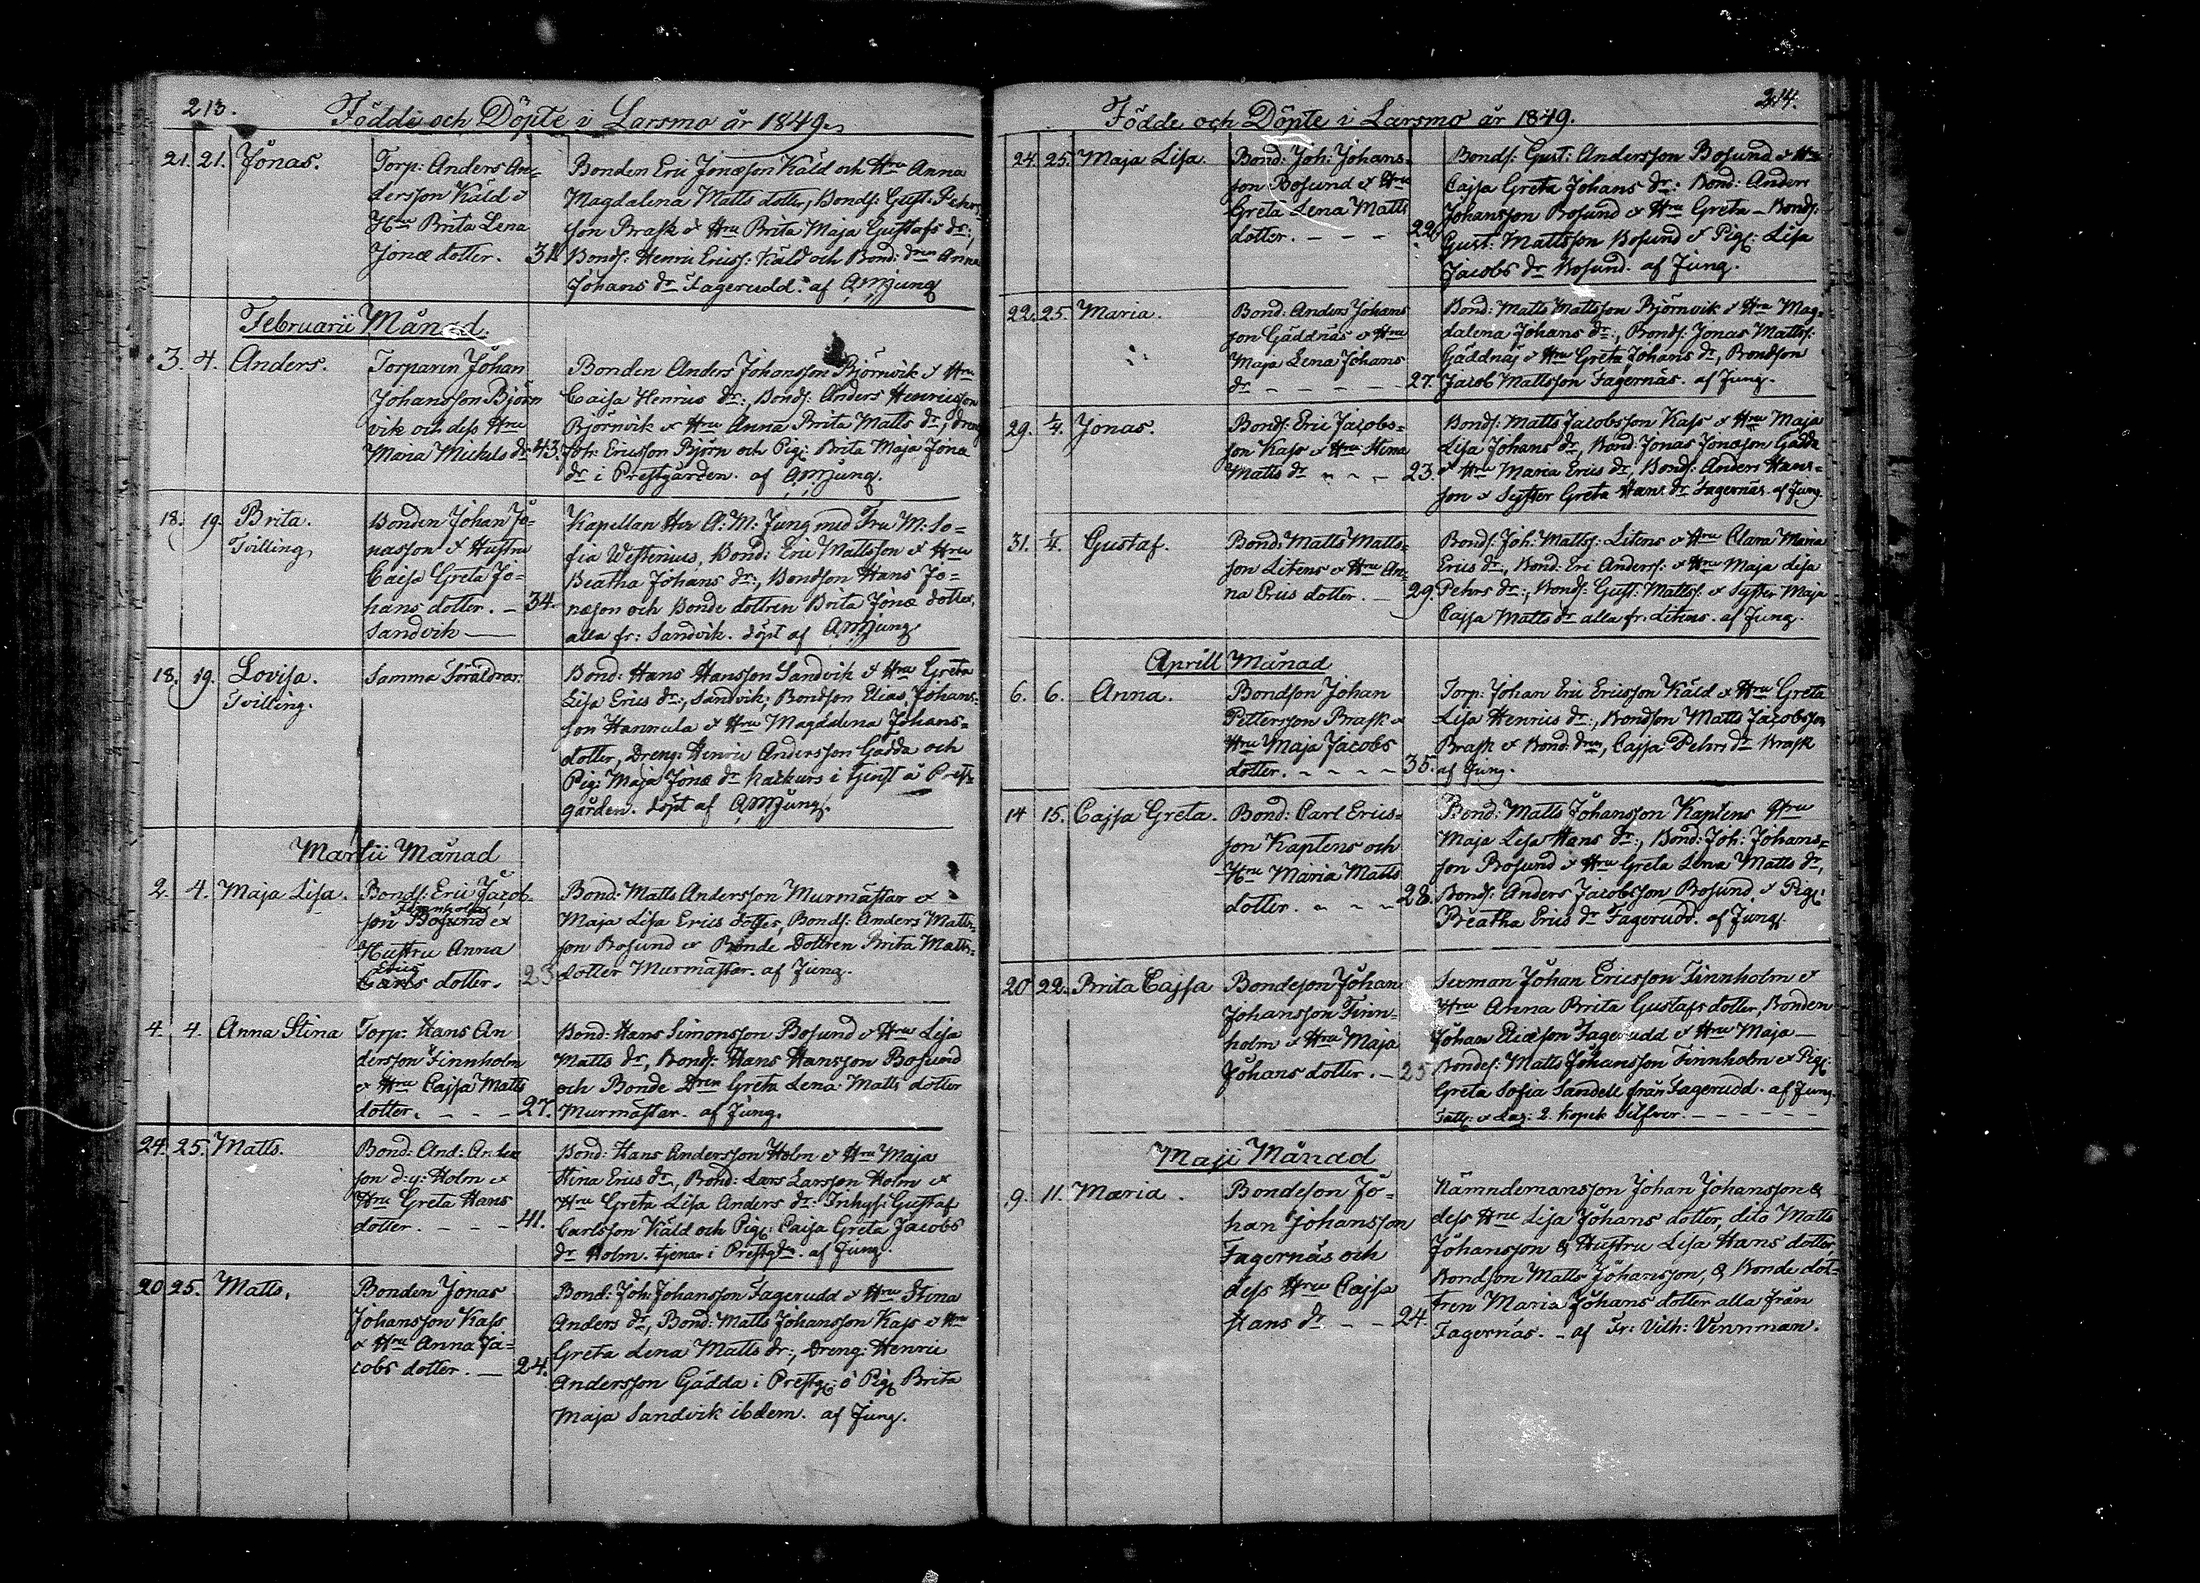 213.
Födde och Döpte i Larsmo år 1849.
21. 21. Jonas.
Torp: Anders An=
dersson Käld &
Hru Brita Lena
Jonæ dotter. 31.
Bonden Eric Jonæson Käld och Hru Anna
Magdalena Matts dotter, Bondf: Gust: Pehrs
son Brask & Hru Brita Maja Gustafs dr:,
Bonds: Henric Ericss: Käld och Bond: dren Anna
Johans dr Fagerudd. af AMJung
Februarii Månad.
3. 4. Anders.
Torparen Johan
Johansson Björn
vik och dess Hru
Maria Mickels dr 43.
Bonden Anders Johansson Björnvik & Hru
Caisa Henrics dr:, Bonds: Anders Henricsson
Björnvik & Hru Anna Brita Matts dr:, dreng
Joh: Ericsson Björn och Pig: Brita Maja Jonæ
dr i Prestgården. af AMJung.
18. 19. Brita.
Tvilling,
Bonden Johan Jo=
nasson & Hustru
Caisa Greta Jo=
hans dotter. - 34.
Sandvik
Kapellan Her A: M: Jung med Fru M: So=
fia Westenius, Bond: Eric Mattsson & Hru
Beatha Johans dr:, Bondson Hans Jo=
næson och Bonde dottren Brita Jonæ dotter,
alla fr: Sandvik. döpt af AMJung
18. 19. Lovisa.
Tvilling.
Samma Föräldrar.
Bond: Hans Hansson Sandvik & Hru Greta
Lisa Erics dr:, Sandvik; Bondson Elias Johans=
son Hannula & Hru Magdalena Johans=
dotter, Dreng: Henric Andersson Gädda och
Pig: Maja Jonæ dr i tienst å Prest=
gården. döpt af AMJung.
Martii Månad
2. 4. Maja Lisa.
Bonds: Eric Jacob
son Bosund &
Hustru Anna
Erics
Carls dotter. 23
Bond: Matts Andersson Murmästar &
Maja Lisa Erics dotter, Bonds: Anders Matts=
son Bosund & Bonde dottren Brita Matts=
dotter Murmästar. af Jung.
4. 4. Anna Stina
Torp: Hans An
dersson Finnholm
& Hru Cajsa Matts
dotter. - - - 27.
Bond: Hans Simonsson Bosund & Hru Lisa
Matts dr, Bonds: Hans Hansson Bosund
och Bonde dren Greta Lena Matts dotter
Murmästar. af Jung.
24. 25. Matts.
Bond: And: Anders
son d: y: Holm &
Hru Greta Hans
dotter. - - - 41.
Bond: Hans Andersson Holm & Hru Maja
Stina Erics dr, Bond: Lars Larsson Holm &
Hru Greta Lisa Anders dr: Inhys: Gustaf
Carlsson Käld och Pig: Caisa Greta Jacobs
dr Holm. tjenar i Prestgdn. af Jung.
20 25. Matts.
Bonden Jonas
Johansson Kass
& Hru Anna Ja=
cobs dotter. - 24.
Bond: Joh: Johansson Fagerudd & Hru Stina
Anders dr, Bond: Matts Johansson Kass & Hru
Greta Lena Matts dr:, Dreng: Henric
Andersson Gädda i Prestg: o Pig: Brita
Maja Sandvik ibdem. af Jung.
214.
Födde och Döpte i Larsmo år 1849.
24. 25. Maja Lisa.
Bond: Joh: Johans=
son Bosund & Hru
Greta Lena Matts
dotter. - - - 22
Bonds: Gust: Andersson Bosund & Hru
Cajsa Greta Johans dr: Bond: Anders
Johansson Bosund & Hru Greta - Bonds:
Gust: Mattsson Bosund & Pig: Lisa
Jacobs dr Bosund. af Jung.
22. 25. Maria.
Bond: Anders Johans
son Gäddnäs & Hru
Maja Lena Johans
dr - - - - - 27.
Bond: Matts Mattsson Björnvik & Hru Mag=
dalena Johans dr:, Bonds: Jonas Mattss:
Gäddnäs & Hru Greta Johans dr, Bondson
Jacob Mattsson Fagernäs. af Jung.
29. 1/4. Jonas.
Bonds: Eric Jacobs=
son Kass & Hru Stina
Matts dr - - - 23.
Bonds: Matts Jacobsson Kass & Hru Maja
Lisa Johans dr, Bond: Jonas Jonæson Gädda
& Hru Maria Erics dr, Bonds: Anders Hans=
son & Syster Greta Hans dr Fagernäs. af Jung
31. 1/4. Gustaf.
Bond: Matts Matts=
son Litens & Hru An=
na Erics dotter. - 29.
Bonds: Joh: Mattss: Litens & Hru Clara Maria
Erics dr:, Bond: Eri Anderss: & Hru Maja Lisa
Pehrs dr:, Bonds: Gust: Mattss: & Syster Maja
Cajsa Matts dr alla fr: Litens. af Jung.
Aprill Månad
6. 6. Anna.
Bondson Johan
Pettersson Brask &
Hru Maja Jacobs
dotter. - - - - 35.
Torp: Johan Eric Ericsson Käld & Hru Greta
Lisa Henrics dr:, Bondson Matts Jacobsson
Brask & Bond: dren, Cajsa Pehrs dr Brask
af Jung.
14 15. Cajsa Greta.
Bond: Carl Erics=
son Kaptens och
Hru Maria Matts
dotter. - - - 28.
Bond: Matts Johansson Kaptens Hru
Maja Lisa Hans dr:, Bond: Joh: Johans=
son Bosund & Hru Greta Lena Matts dr,
Bonds: Anders Jacobsson Bosund & Pig:
Beatha Erics dr Fagerudd. af Jung.
20 22. Brita Cajsa
Bondeson Johan
Johansson Finn=
holm & Hru Maja
Johans dotter. - 25
Seeman Johan Ericsson Finnholm &
Hru Anna Brita Gustafs dotter, Bonden
Johan Fagerudd & Hru Maja -
Bondes: Matts Johansson Finnholm & Pig:
Greta Sofia Sandell från Fagerudd. af Jung.
Fattg: & Laz: 2. kopek Silfver. - - - - -
Maji Månad
9. 11. Maria.
Bondeson Jo=
han Johansson
Fagernäs och
dess Hru Cajsa
Hans dr - - 24.
Nämndemansson Johan Johansson &
dess Hru Lisa Johans dotter, dito Matts
Johansson & Hustru Lisa Hans dotter,
Bondson Matts Johansson, & Bonde dot=
tren Maria Johans dotter alla från
Fagernäs. - af Fr: Vilh: Vennman.